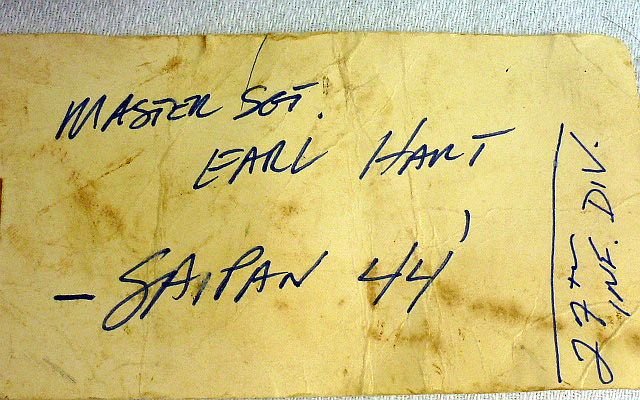 MASTER SGT.
EARL HART
- SAIPAN 44'
27TH
INF. DIV.